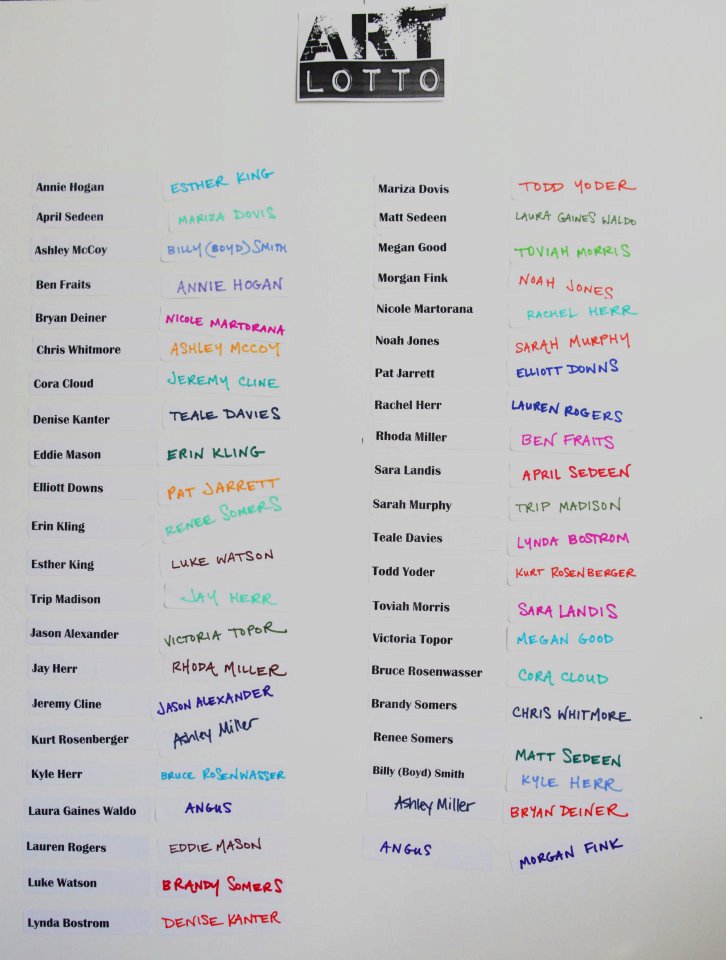 ART
LOTTO
Annie Hogan ESTHER KING
April Sedeen MARIZA DOVIS
Ashley McCoy BILLY (BOYD) SMITH
Ben Fraits ANNIE HOGAN
Bryan Deiner NICOLE MARTORANA
Chris Whitmore ASHLEY MCCOY
Cora Cloud JEREMY CLINE
Denise Kanter TEALE DAVIES
Eddie Mason ERIN KLING
Elliott Downs PAT JARRETT
Erin Kling RENEE SOMERS
Esther King LUKE WATSON
Trip Madison JAY HERR
Jason Alexander VICTORIA TOPOR
Jay Herr RHODA MILLER
Jeremy Cline JASON ALEXANDER
Kurt Rosenberger Ashley Miller
Kyle Herr BRUCE ROSENWASSER
Laura Gaines Waldo ANGUS
Lauren Rogers EDDIE MASON
Luke Watson BRANDY SOMERS
Lynda Bostrom DENISE KANTER
Mariza Dovis TODD YODER
Matt Sedeen LAURA GAINES WALDO
Megan Good TOVIAH MORRIS
Morgan Fink NOAH JONES
Nicole Martorana RACHEL HERR
Noah Jones SARAH MURPHY
Pat Jarrett ELLIOTT DOWNS
Rachel Herr LAUREN ROGERS
Rhoda Miller BEN FRAITS
Sara Landis APRIL SEDEEN
Sarah Murphy TRIP MADISON
Teale Davies LYNDA BOSTROM
Todd Yoder KURT ROSENBERGER
Toviah Morris SARA LANDIS
Victoria Topor MEGAN GOOD
Bruce Rosenwasser CORA CLOUD
Brandy Somers CHRIS WHITMORE
Renee Somers MATT SEDEEN
Billy (Boyd) Smith KYLE HERR
Ashley Miller BRYAN DEINER
ANGUS MORGAN FINK